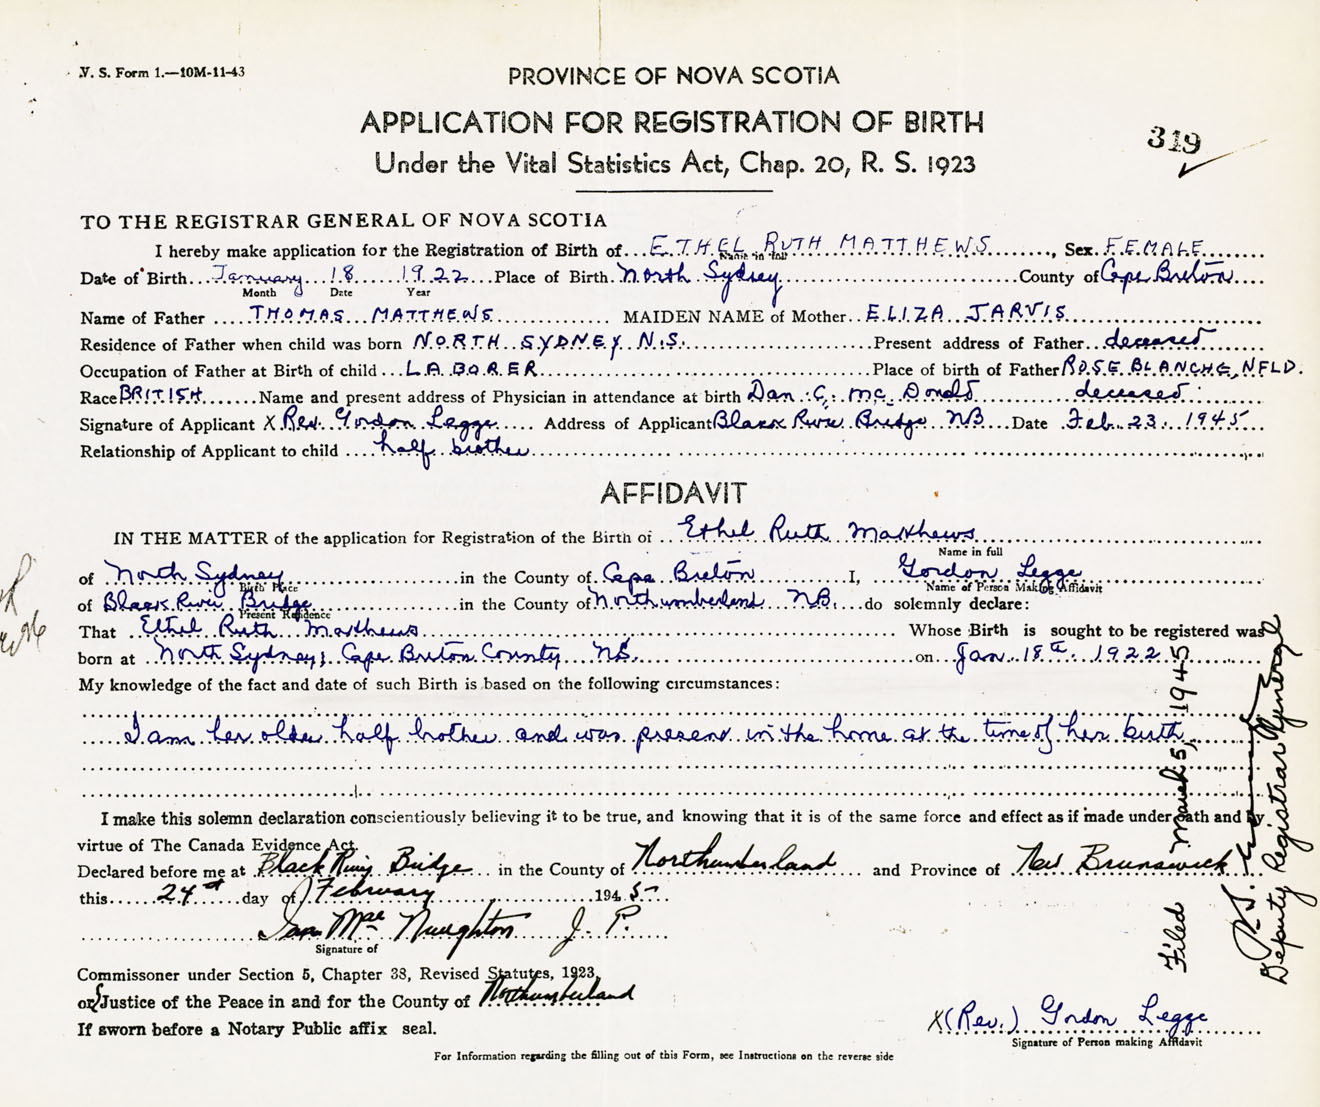 V. S. Form 1.—10M-11-43
PROVINCE OF NOVA SCOTIA
APPLICATION FOR REGISTRATION OF BIRTH
319
Under the Vital Statistics Act, Chap. 20, R. S. 1923
TO THE REGISTRAR GENERAL OF NOVA SCOTIA
I hereby make application for the Registration of Birth of ETHEL RUTH MATTHEWS, Sex FEMALE
Name in full
Date of Birth January 18 1922 Place of Birth North Sydney County of Cape Breton
Month Date Year
Name of Father THOMAS MATTHEWS MAIDEN NAME of Mother ELIZA JARVIS
Residence of Father when child was born NORTH SYDNEY N.S. Present address of Father deceased
Occupation of Father at Birth of child LABORER Place of birth of Father ROSE BLANCHE, NFLD.
Race BRITISH Name and present address of Physician in attendance at birth Dan. C. Mc Donald deceased
Signature of Applicant X Rev. Gordon Legge Address of Applicant Black River Bridge NB Date Feb. 23. 1945
Relationship of Applicant to child half brother
AFFIDAVIT
IN THE MATTER of the application for Registration of the Birth of Ethel Ruth Matthews
Name in full
of North Sydney in the County of Cape Breton I, Gordon Legge
Birth Place Name of Person Making Affidavit
of Black River Bridge in the County of Northumberland NB. do solemnly declare:
Present Residence
That Ethel Ruth Matthews Whose Birth is sought to be registered was
born at North Sydney, Cape Breton County NS. on Jan. 18th. 1922
My knowledge of the fact and date of such Birth is based on the following circumstances:
I am her older half brother and was present in the home at the time of her birth
I make this solemn declaration conscientiously believing it to be true, and knowing that it is of the same force and effect as if made under oath and by
virtue of The Canada Evidence Act.
Declared before me at Black River Bridge in the County of Northumberland and Province of New Brunswick
this 24th day of February 1945
Ian Mac Naughton J. P.
Signature of
Commissoner under Section 5, Chapter 38, Revised Statutes, 1923,
or Justice of the Peace in and for the County of Northumberland
If sworn before a Notary Public affix seal.
X (Rev.) Gordon Legge
Signature of Person making Affidavit
For Information regarding the filling out of this Form, see Instructions on the reverse side
Filed March 5, 1945
Deputy Registrar General